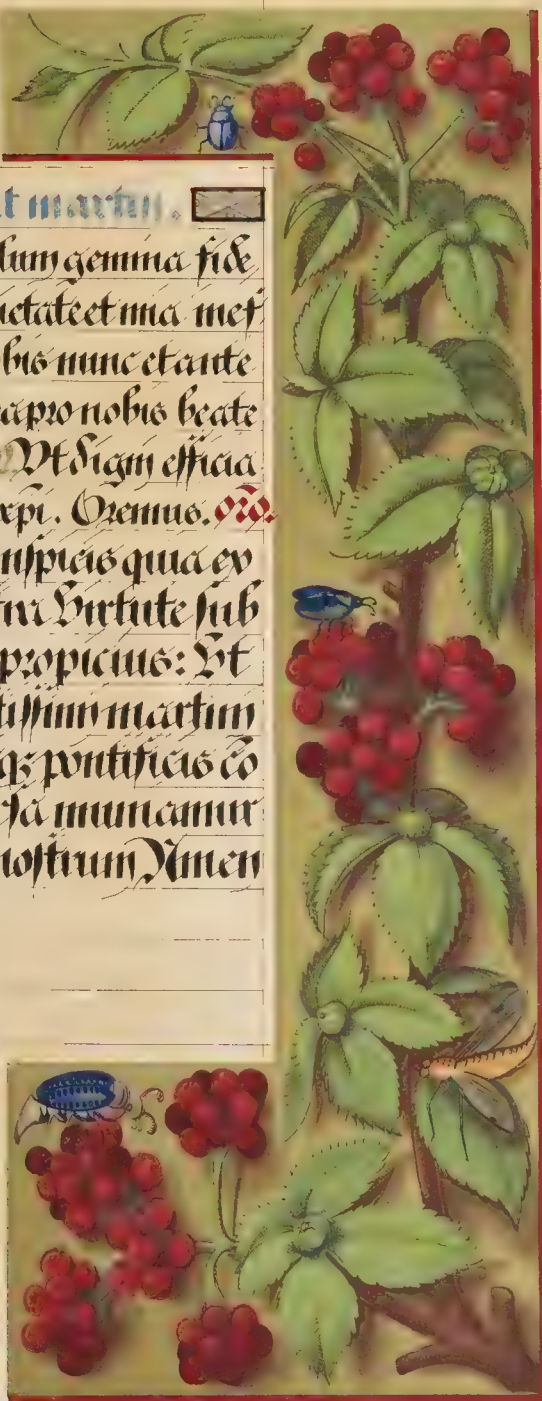 t martin.
lum gemma fide
ietate et mia mes
bis nunc et ante
a pro nobis beate
Vt digni efficia
xpi. Oremus. oro.
nspicis quia ex
tra virtute sub
propicius: Vt
tissimi martini
qz pontificis co
sa muniamur
nostrum Amen